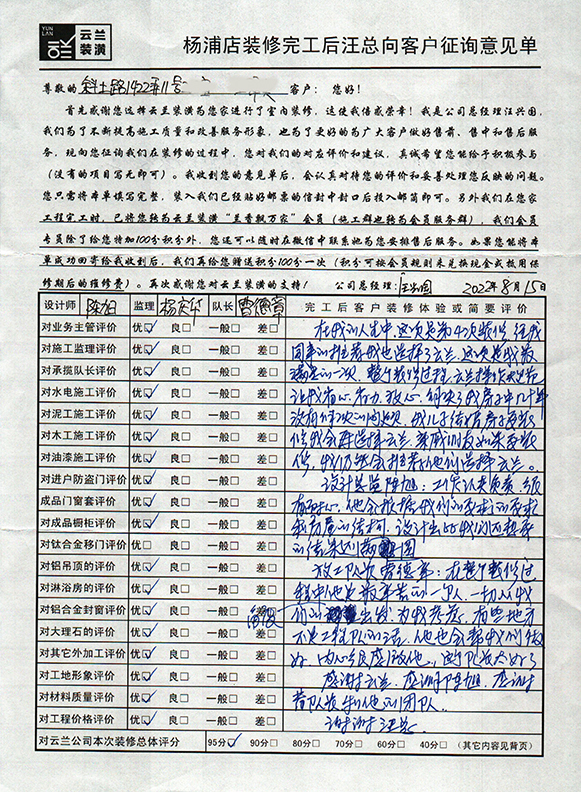 YUN LAN 云兰装潢
杨浦店装修完工后汪总向客户征询意见单
尊敬的 斜土路1422弄11号 客户： 您好！
首先感谢您选择云兰装潢为您家进行了室内装修，这使我倍感荣幸！我是公司总经理汪兴国，
我们为了不断提高施工质量和改善服务形象，也为了更好的为广大客户做好售前、售中和售后服
务，现向您征询我们在装修的过程中，您对我们的对应评价和建议，真诚希望您能给于积极参与
（没有的项目写无即可）。我收到您的意见单后，会认真对待您的评价和妥善处理您反映的问题。
您只需将本单填写完整，装入我们已经贴好邮票的信封中封口后投入邮筒即可。另外我们在您家
工程完工时，已将您转为云兰装潢“兰香飘万家”会员（施工群也转为会员服务群），我们会员
专员除了给您特加100分积分外，您还可以随时在微信中联系她为您安排售后服务。如果您能将本
单成功回寄给我收到后，我们再给您赠送积分100分一次（积分可按会员规则来兑换现金或抵用保
修期后的维修费）。再次感谢您对云兰装潢的支持！ 公司总经理：汪兴国 2022年8月15日
设计师 陈旭 监理 队长 曹德章 完工后客户装修体验或简要评价
对业务主管评价 优☑ 良□ 一般□ 差□ 在我的人生中，这次是第4次装修，经我
对施工监理评价 优☑ 良□ 一般□ 差□ 同事的推荐我也选择了云兰。这次是我最
对承揽队长评价 优☑ 良□ 一般□ 差□ 满意的一次，整个装修过程，云兰
对水电施工评价 优☑ 良□ 一般□ 差□ 让我省心、省力、放心，解决了我房子中几十年
对泥工施工评价 优☑ 良□ 一般□ 差□ 没有解决的问题，我儿子结婚房子要装
对木工施工评价 优☑ 良□ 一般□ 差□ 修我会再选择云兰，亲戚朋友如果要装
对油漆施工评价 优☑ 良□ 一般□ 差□ 修，我仍然会推荐他们选择云兰。
对进户防盗门评价 优☑ 良□ 一般□ 差□ 设计总监陈旭：工作认真负责，
成品门窗套评价 优☑ 良□ 一般□ 差□ 有耐心，他会根据我们的要求
对成品橱柜评价 优☑ 良□ 一般□ 差□ 和房屋的结构，设计出
对钛合金移门评价 优□ 良□ 一般□ 差□ 的结果
对铝吊顶的评价 优☑ 良□ 一般□ 差□ 施工队长曹德章：在整个装修过
对淋浴房的评价 优☑ 良□ 一般□ 差□ 程中他是最辛苦的一个人，一切以我
对铝合金封窗评价 优□ 良□ 一般□ 差□ 们的 出发，为我着想，有些地方
对大理石的评价 优☑ 良□ 一般□ 差□ 不是工程队的活，他也会帮我们做
对其它外加工评价 优☑ 良□ 一般□ 差□ 好，内心多是感激他，队长太好了
对工地形象评价 优☑ 良□ 一般□ 差□ 感谢云兰，感谢陈旭，感谢
对材料质量评价 优☑ 良□ 一般□ 差□ 曹队长和他的团队。
对工程价格评价 优☑ 良□ 一般□ 差□ 谢谢汪总
对云兰公司本次装修总体评分 95分☑ 90分□ 80分□ 70分□ 60分□ 40分□ （其它内容见背页）